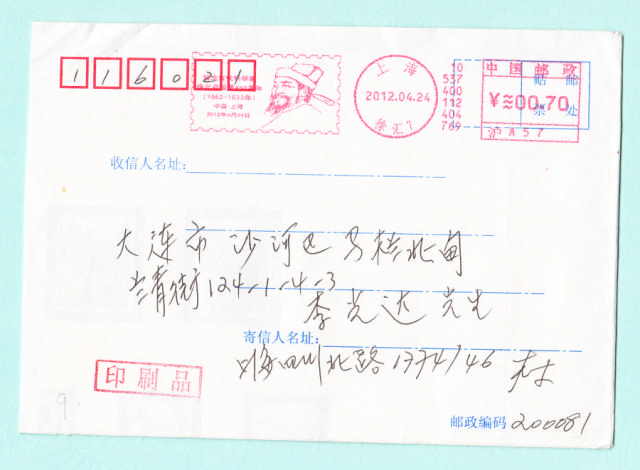 116021
(1562-1633年)
中国·上海
2012年4月24日
上海
2012.04.24
10
537
400
112
404
769
中国邮政
贴邮
票处
¥≋00.70
沪A57
收信人名址:
大连市沙河区
街124-1-4-3
李 达先生
寄信人名址:
四川北路1774/46
印刷品
9.
邮政编码 200081